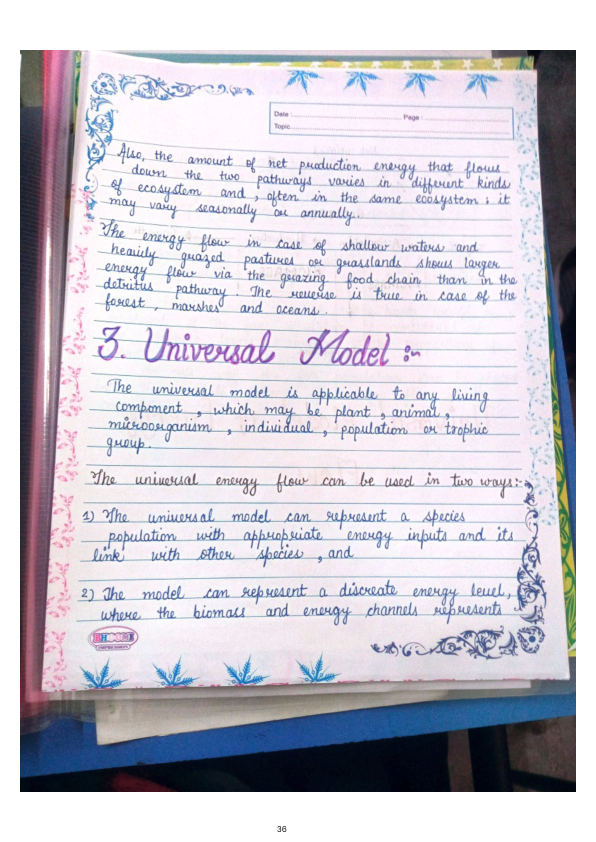 Date :
Page :
Topic
Also, the amount of net production energy that flows
down the two pathways varies in different kinds
of ecosystem and , often in the same ecosystem ; it
may vary seasonally or annually.
The energy flow in case of shallow waters and
heavily grazed pastures or grasslands shows larger
energy flow via the grazing food chain than in the
detritus pathway. The reverse is true in case of the
forest , marshes and oceans .
3. Universal Model :~
The universal model is applicable to any living
component , which may be plant , animal ,
microorganism , individual , population or trophic
group.
The universal energy flow can be used in two ways:-
1) The universal model can represent a species
population with appropriate energy inputs and its
link with other species , and
2) The model can represent a discreate energy level,
where the biomass and energy channels represents
36